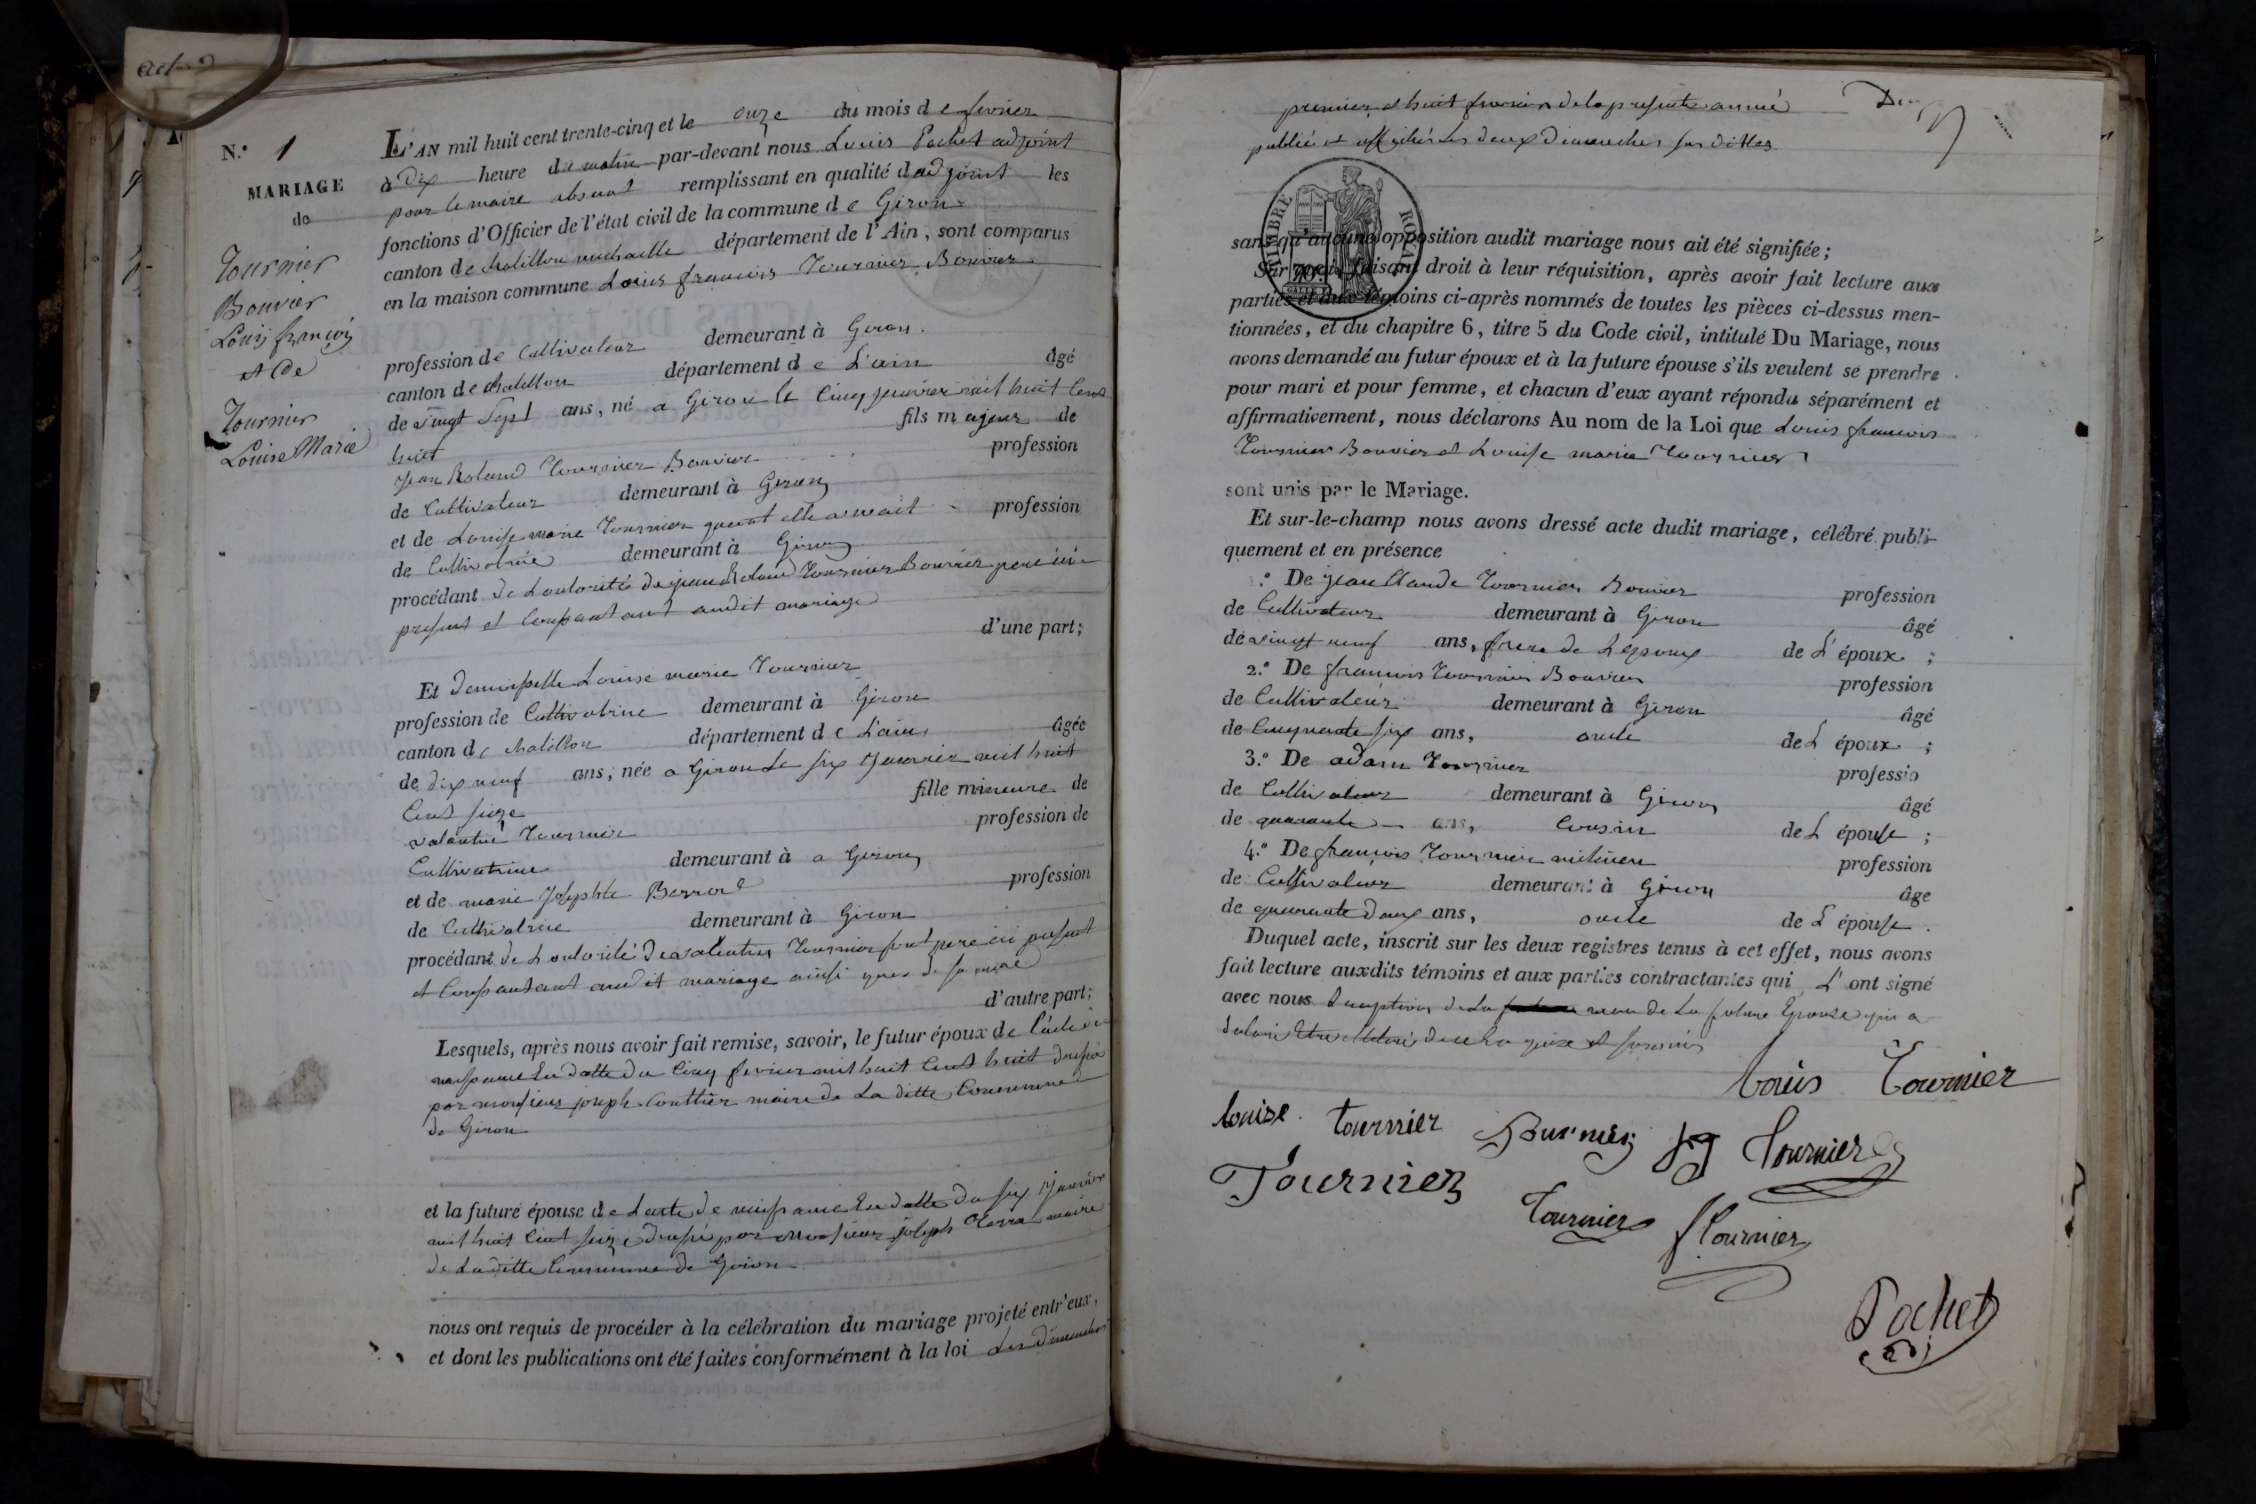 N.º 1
MARIAGE
de
Tournier
Bouvier
Louis françois
et de
Tournier
Louise Marie
L'AN mil huit cent trente-cinq et le onze du mois de fevrier
à dix heure du matin par-devant nous Louis Pochet adjoint
pour le maire absent remplissant en qualité d'adjoint les
fonctions d'Officier de l'état civil de la commune de Giron
canton de chatillon michaille département de l'Ain, sont comparus
en la maison commune Louis francois Tournier Bouvier
profession de Cultivateur demeurant à Giron
canton de chatillon département de L'ain âgé
de vingt Sept ans, né a Giron le Cinq janvier mil huit Cent
huit fils majeur de
jean Roland Tournier Bouvier profession
de Cultivateur demeurant à Giron
et de Louise marie Tournier quant elle vivait profession
de Cultivatrice demeurant à Giron
procédant de Lautorité de jean Roland Tournier Bouvier pere ici
present et Consentant audit mariage
d'une part;
Et demoiselle Louise marie Tournier
profession de Cultivatrice demeurant à Giron
canton de chatillon département de L'ain âgée
de dix neuf ans, née a Giron Le six Janvier mil huit
Cent seize fille mineure de
valentin Tournier profession de
Cultivatrice demeurant à a Giron
et de marie josephte profession
de Cultivatrice demeurant à Giron
procédant de Lautorité de valentin Tournier son pere ici present
et Consentant audit mariage ainsi que de sa mere
d'autre part;
Lesquels, après nous avoir fait remise, savoir, le futur époux de l'acte de
naissance En datte du Cinq fevrier mil huit Cent huit dressé
par monsieur joseph Gouttier maire de La ditte Commune
de Giron
et la future épouse de Lacte de naissance En datte du six Janvier
mil huit Cent seize dressé par monsieur joseph maire
de Laditte Commune de Giron
nous ont requis de procéder à la célébration du mariage projeté entr'eux,
et dont les publications ont été faites conformément à la loi Les dimanches
premier et huit fevrier de la presente année
publiés et affichés Les deux Dimanches sus dittes
TIMBRE ROYAL
sans qu'aucune opposition audit mariage nous ait été signifiée;
Sur quoi, faisant droit à leur réquisition, après avoir fait lecture aux
parties et aux témoins ci-après nommés de toutes les pièces ci-dessus men-
tionnées, et du chapitre 6, titre 5 du Code civil, intitulé Du Mariage, nous
avons demandé au futur époux et à la future épouse s'ils veulent se prendre
pour mari et pour femme, et chacun d'eux ayant répondu séparément et
affirmativement, nous déclarons Au nom de la Loi que Louis francois
Tournier Bouvier et Louise marie Tournier
sont unis par le Mariage.
Et sur-le-champ nous avons dressé acte dudit mariage, célébré publi-
quement et en présence
1.º De jean Claude Tournier Bouvier profession
de Cultivateur demeurant à Giron âgé
de vingt neuf ans, frere de Lepoux de L'époux ;
2.º De francois Tournier Bouvier profession
de Cultivateur demeurant à Giron âgé
de Cinquante six ans, oncle de L époux ;
3.º De adam Tournier professio
de Cultivateur demeurant à Giron âgé
de quarante ans, Cousin de L épouse ;
4.º De françois Tournier profession
de Cultivateur demeurant à Giron âge
de quarante deux ans, oncle de L épouse .
Duquel acte, inscrit sur les deux registres tenus à cet effet, nous avons
fait lecture auxdits témoins et aux parties contractantes qui L'ont signé
avec nous Exception de La mere de La future Epouse qui a
Louis Tournier
Louise Tournier
Tournier
Tournier
Tournier
f Tournier
Pochet